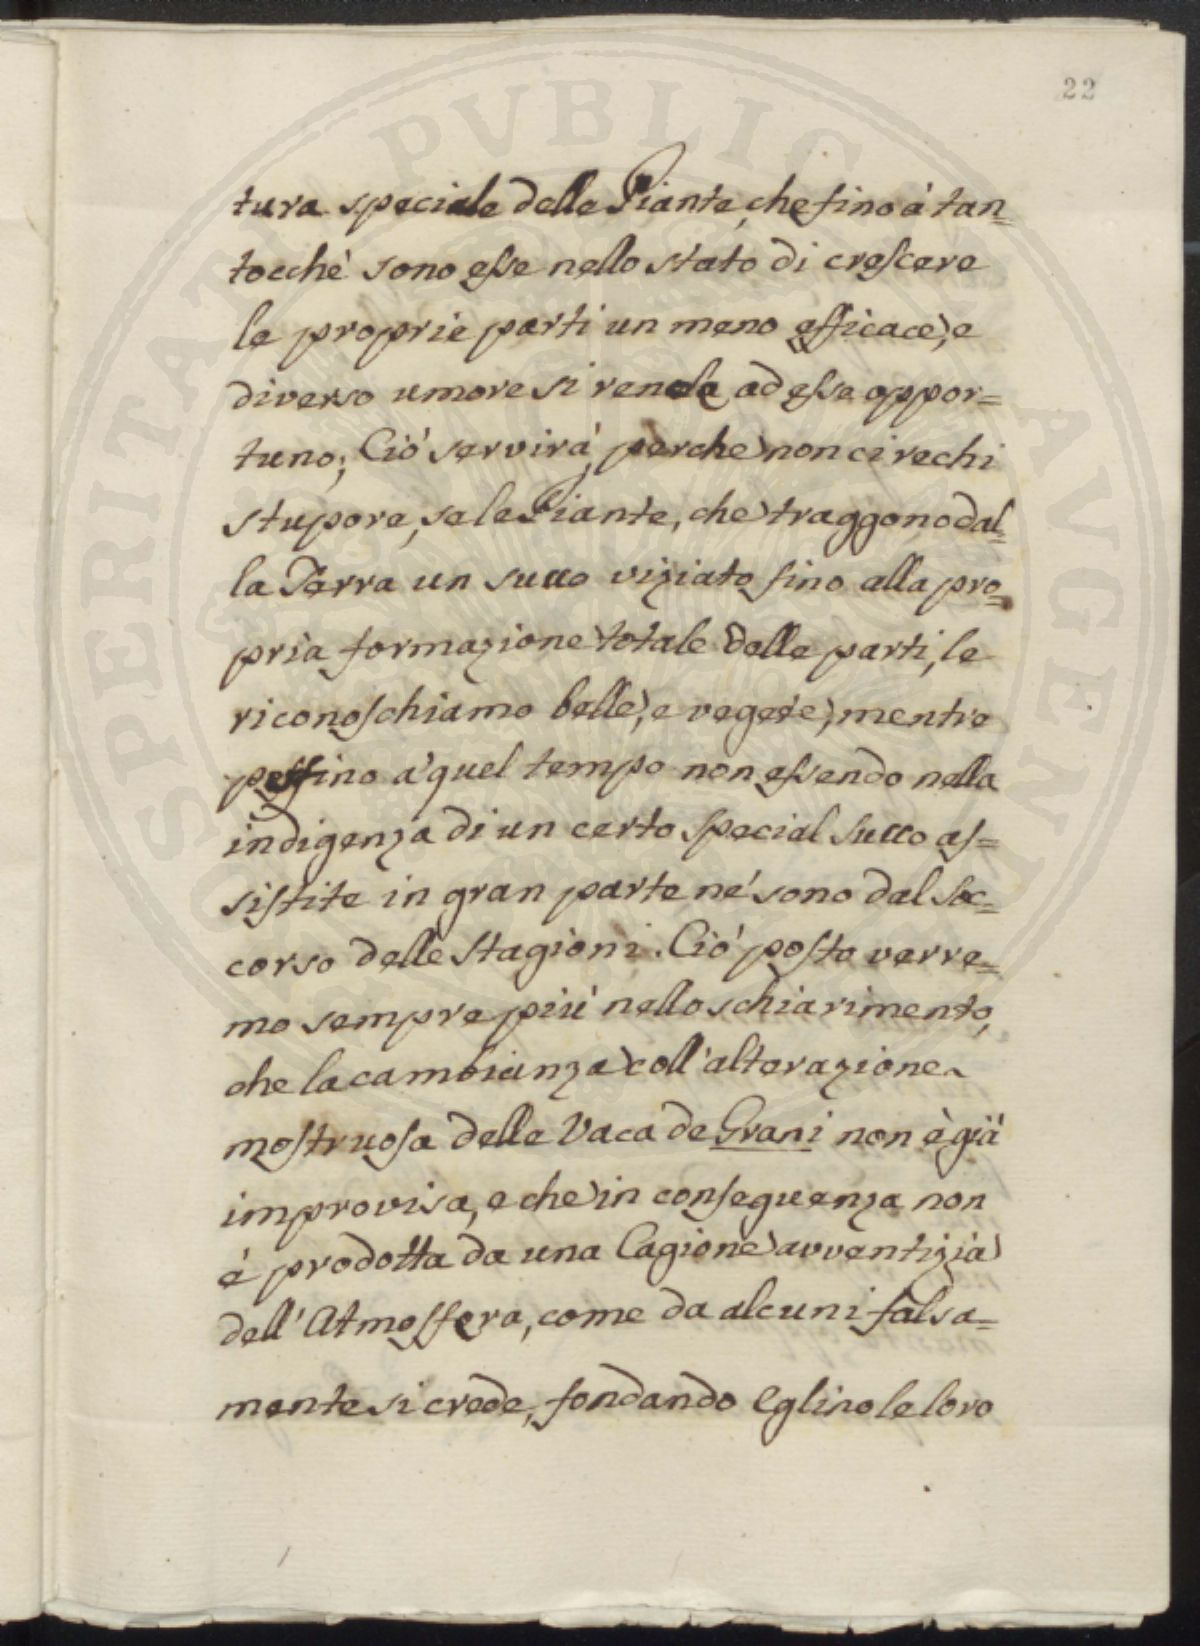 22
tura speciale delle Piante, che fino à tan=
tocchè sono esse nello stato di crescere
le proprie parti un meno efficace, e
diverso umore si renda ad esse oppor=
tuno; Ciò servirà, perche non ci rechi
stupore, se le Piante, che traggono dal=
la Terra un succo viziato fino alla pro=
pria formazione totale delle parti, le
riconoschiamo belle, e vegete, mentre
perfino a' quel tempo non essendo nella
indigenza di un certo special succo as=
sistite in gran parte ne' sono dal soc=
corso delle Stagioni. Ciò posto verre=
mo sempre più nello schiarimento,
che la cambianza coll' alterazione
mostruosa delle Vaca de Grani non è già
improvisa, e che in conseguenza non
è prodotta da una Cagione avventizia
dell' Atmosfera, come da alcuni falsa=
mente si crede, fondando Eglino le loro